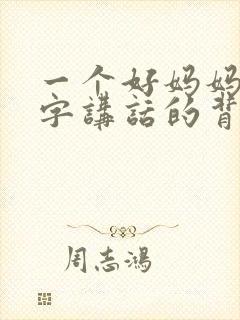 一个好妈妈
字講話的背
周志鴻